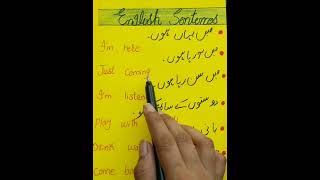 English Sentences
I'm here. میں یہاں ہوں۔
Just Coming میں آ رہا ہوں۔
I'm listen میں سن رہا ہوں۔
Play with دوستوں کے ساتھ
Drink wa پانی
Come ba